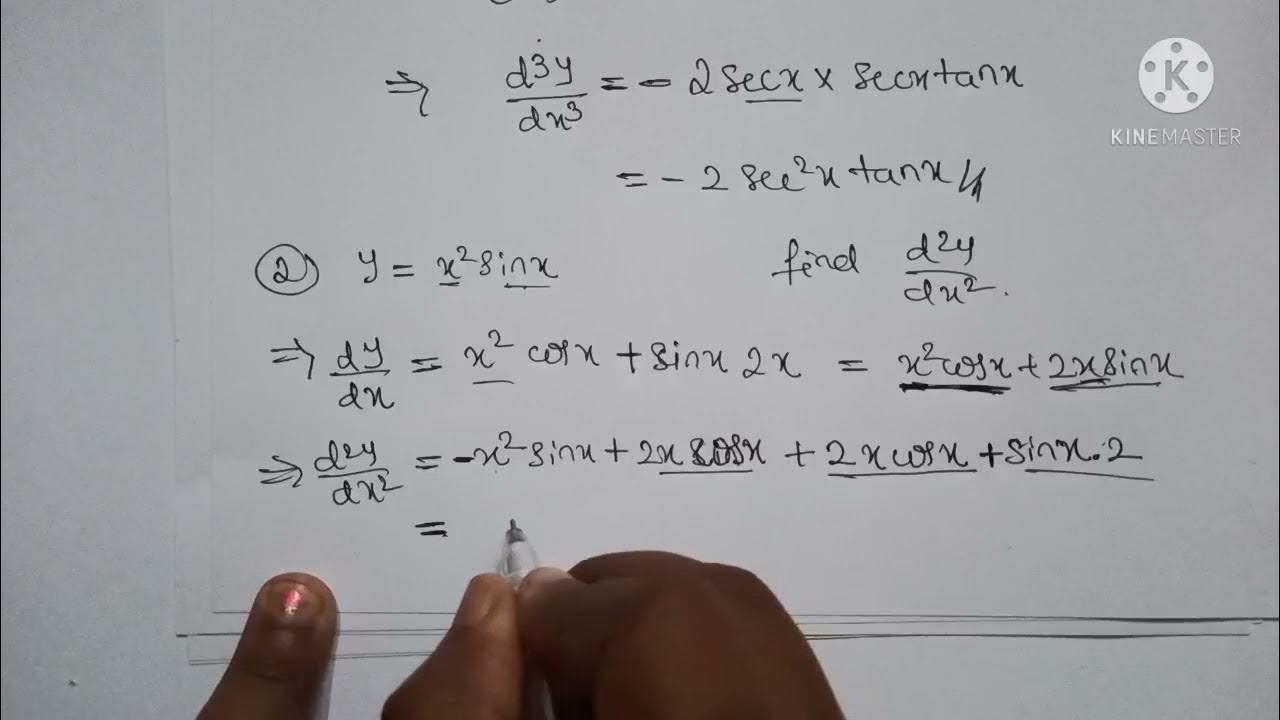 ⇒ d³y/dx³ = - 2 secx × secx tanx
= - 2 sec²x tanx //
KINEMASTER
② y = x² sinx find d²y/dx².
⇒ dy/dx = x² cosx + sinx 2x = x² cosx + 2x sinx
⇒ d²y/dx² = -x² sinx + 2x cosx + 2x cosx + sinx · 2
=